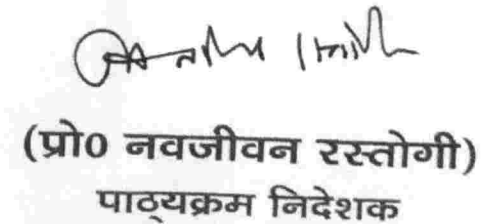 (प्रो0 नवजीवन रस्तोगी)
पाठ्यक्रम निदेशक